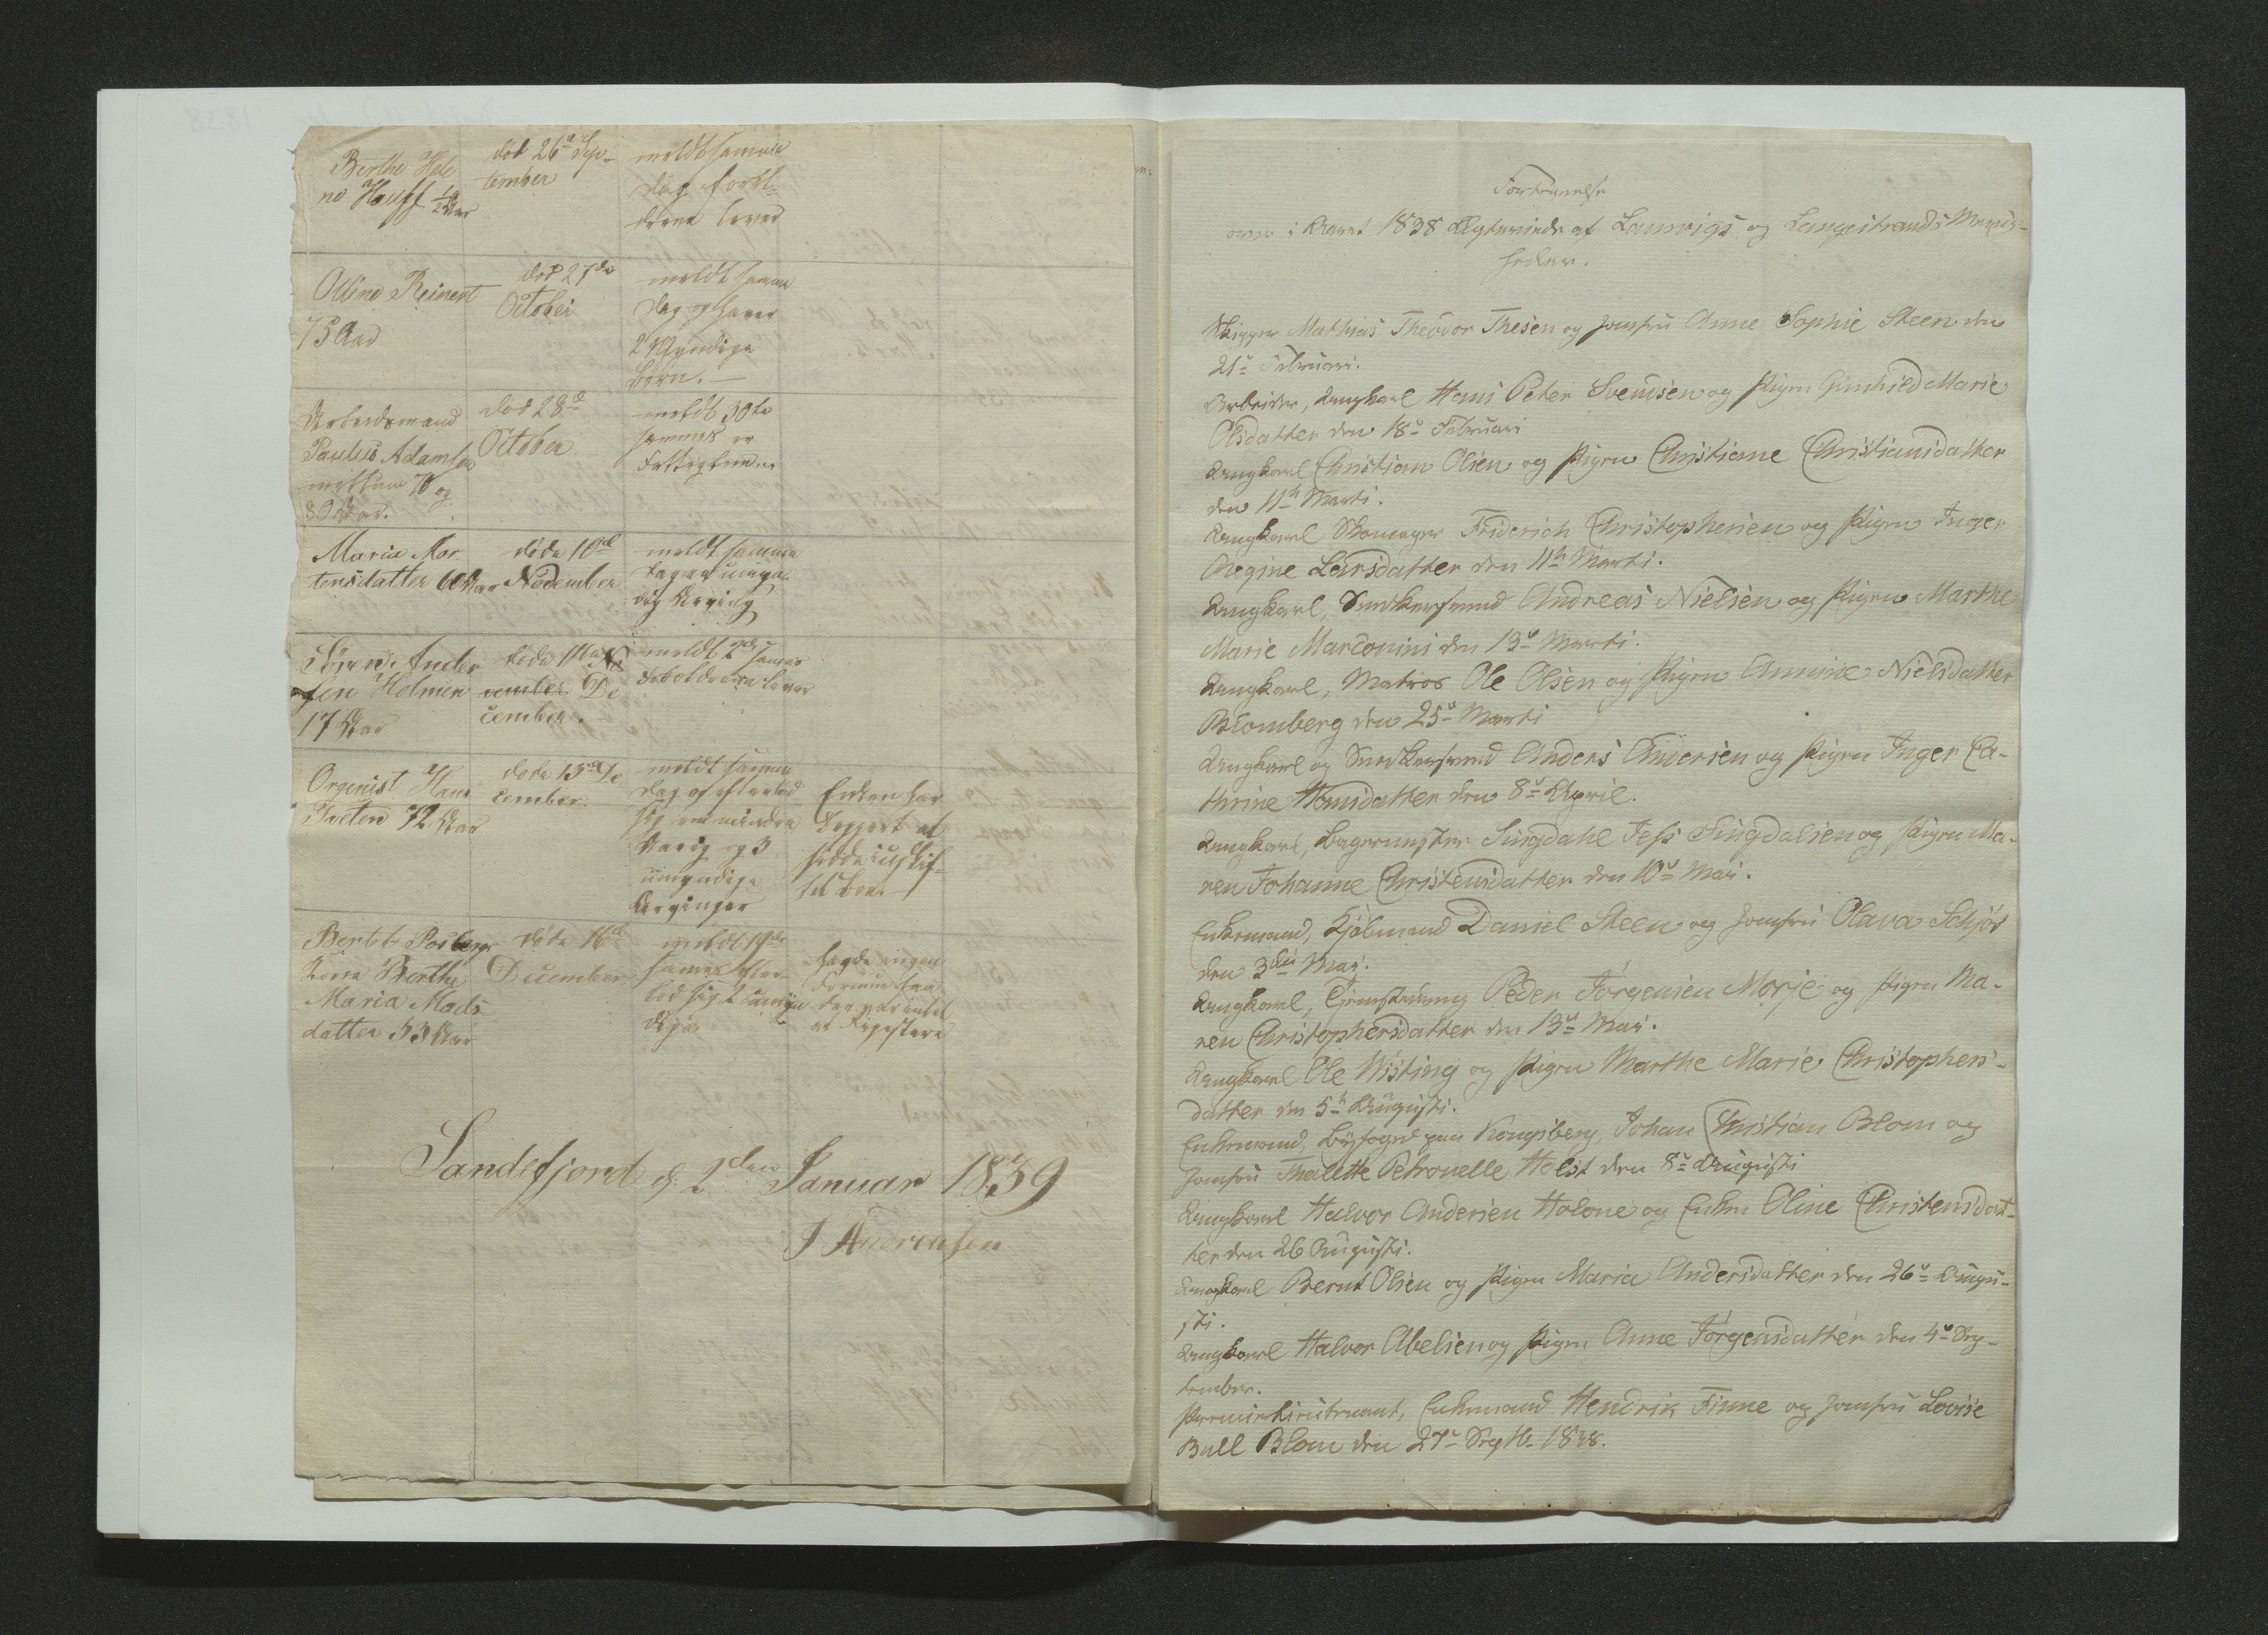 Berthe Hele
ne Hauff 1/2 Aar
død 26de Sep-
tember
meldt samme
Dag Foræl-
drene lever
Olline Reinert
75 Aar
død 27de
October
meldt samme
Dag og haver
2 Myndige
Børn. —
Arbeidsmand
Paulus Adamsen
mellem 70 og
80 Aar.
død 28de
October
meldt 30te
sammes er
Fattiglem
Maria Mor
tensdatter Aar
døde 10de
November
meldt samme
Dag
Arving
Søren Ander
sen Holmen
17 Aar
døde
vember De
cember.
meldt samme
lever
Organist Hans
Tveten 72 Aar
døde 13de De
cember.
meldt samme
Dag og efterlod
sig en mindre
aarig og 3
umyndige
Arvinger
Enken har
at
sidde i uskif-
tet Boe
Bertel
Kone Berthe
Maria Mads
datter 53 Aar
døde 16de
December
meldt 19de
sammes efter-
lod sig 2 umyn
dige
havde ingen
Formue saa
der var intet
at Registere
Sandefjord d. 2den Januar 1839
J Andreasen
Fortegnelse
over i Aaret 1838 Ægteviede af Laurvigs og Langestrands Menig-
heder.
Skipper Mathias Theodor Thesen og Jomfru Anne Sophie Steen den
21de Februari.
Arbeider, Ungkarl Hans Peter Svendsen og Pigen Gunhild Marie
Olsdatter den 18de Februari
Ungkarl Christian Olsen og Pigen Christiane Christiansdatter
den 11te Marti.
Ungkarl Skomager Friderich Christophersen og Pigen Inger
Regine Larsdatter den 11te Marti.
Ungkarl, Snedkersvend Andreas Nielsen og Pigen Marthe
Marie Marconini den 13de Marti.
Ungkarl, Matros Ole Olsen og Pigen Annine Nielsdatter
Blomberg den 25de Marti
Ungkarl og Snedkersvend Anders Andersen og Pigen Inger Ca-
thrine Hansdatter den 8de April.
Ungkarl, Bagermester Singdahl Jess Singdalsen og Pigen Ma-
ren Johanne Christensdatter den 10de Mai.
Enkemand, Kjøbmand Daniel Steen og Jomfru Olava Schjøt
den 3die Mai.
Ungkarl, Tjenestedreng Peder Jørgensen Morje og Pigen Ma-
ren Christophersdatter den 13de Mai.
Ungkarl Ole Wisting og Pigen Marthe Marie Christophers-
datter den 5te Augusti.
Enkemand, Byfoged paa Kongsberg, Johan Christian Blom og
Jomfru Thalette Petronelle Holst den 8de Augusti
Ungkarl Halvor Andersen Holone og Enken Oline Christensdat-
ter den 26 Augusti.
Ungkarl Bernt Olsen og Pigen Maria Andersdatter den 26de Augu-
sti.
Ungkarl Halvor Abelsen og Pigen Anne Jørgensdatter den 4de Sep-
tember.
Premierlieutenant, Enkemand Hendrik Finne og Jomfru Lovise
Bull Blom den 27de Septb. 1838.